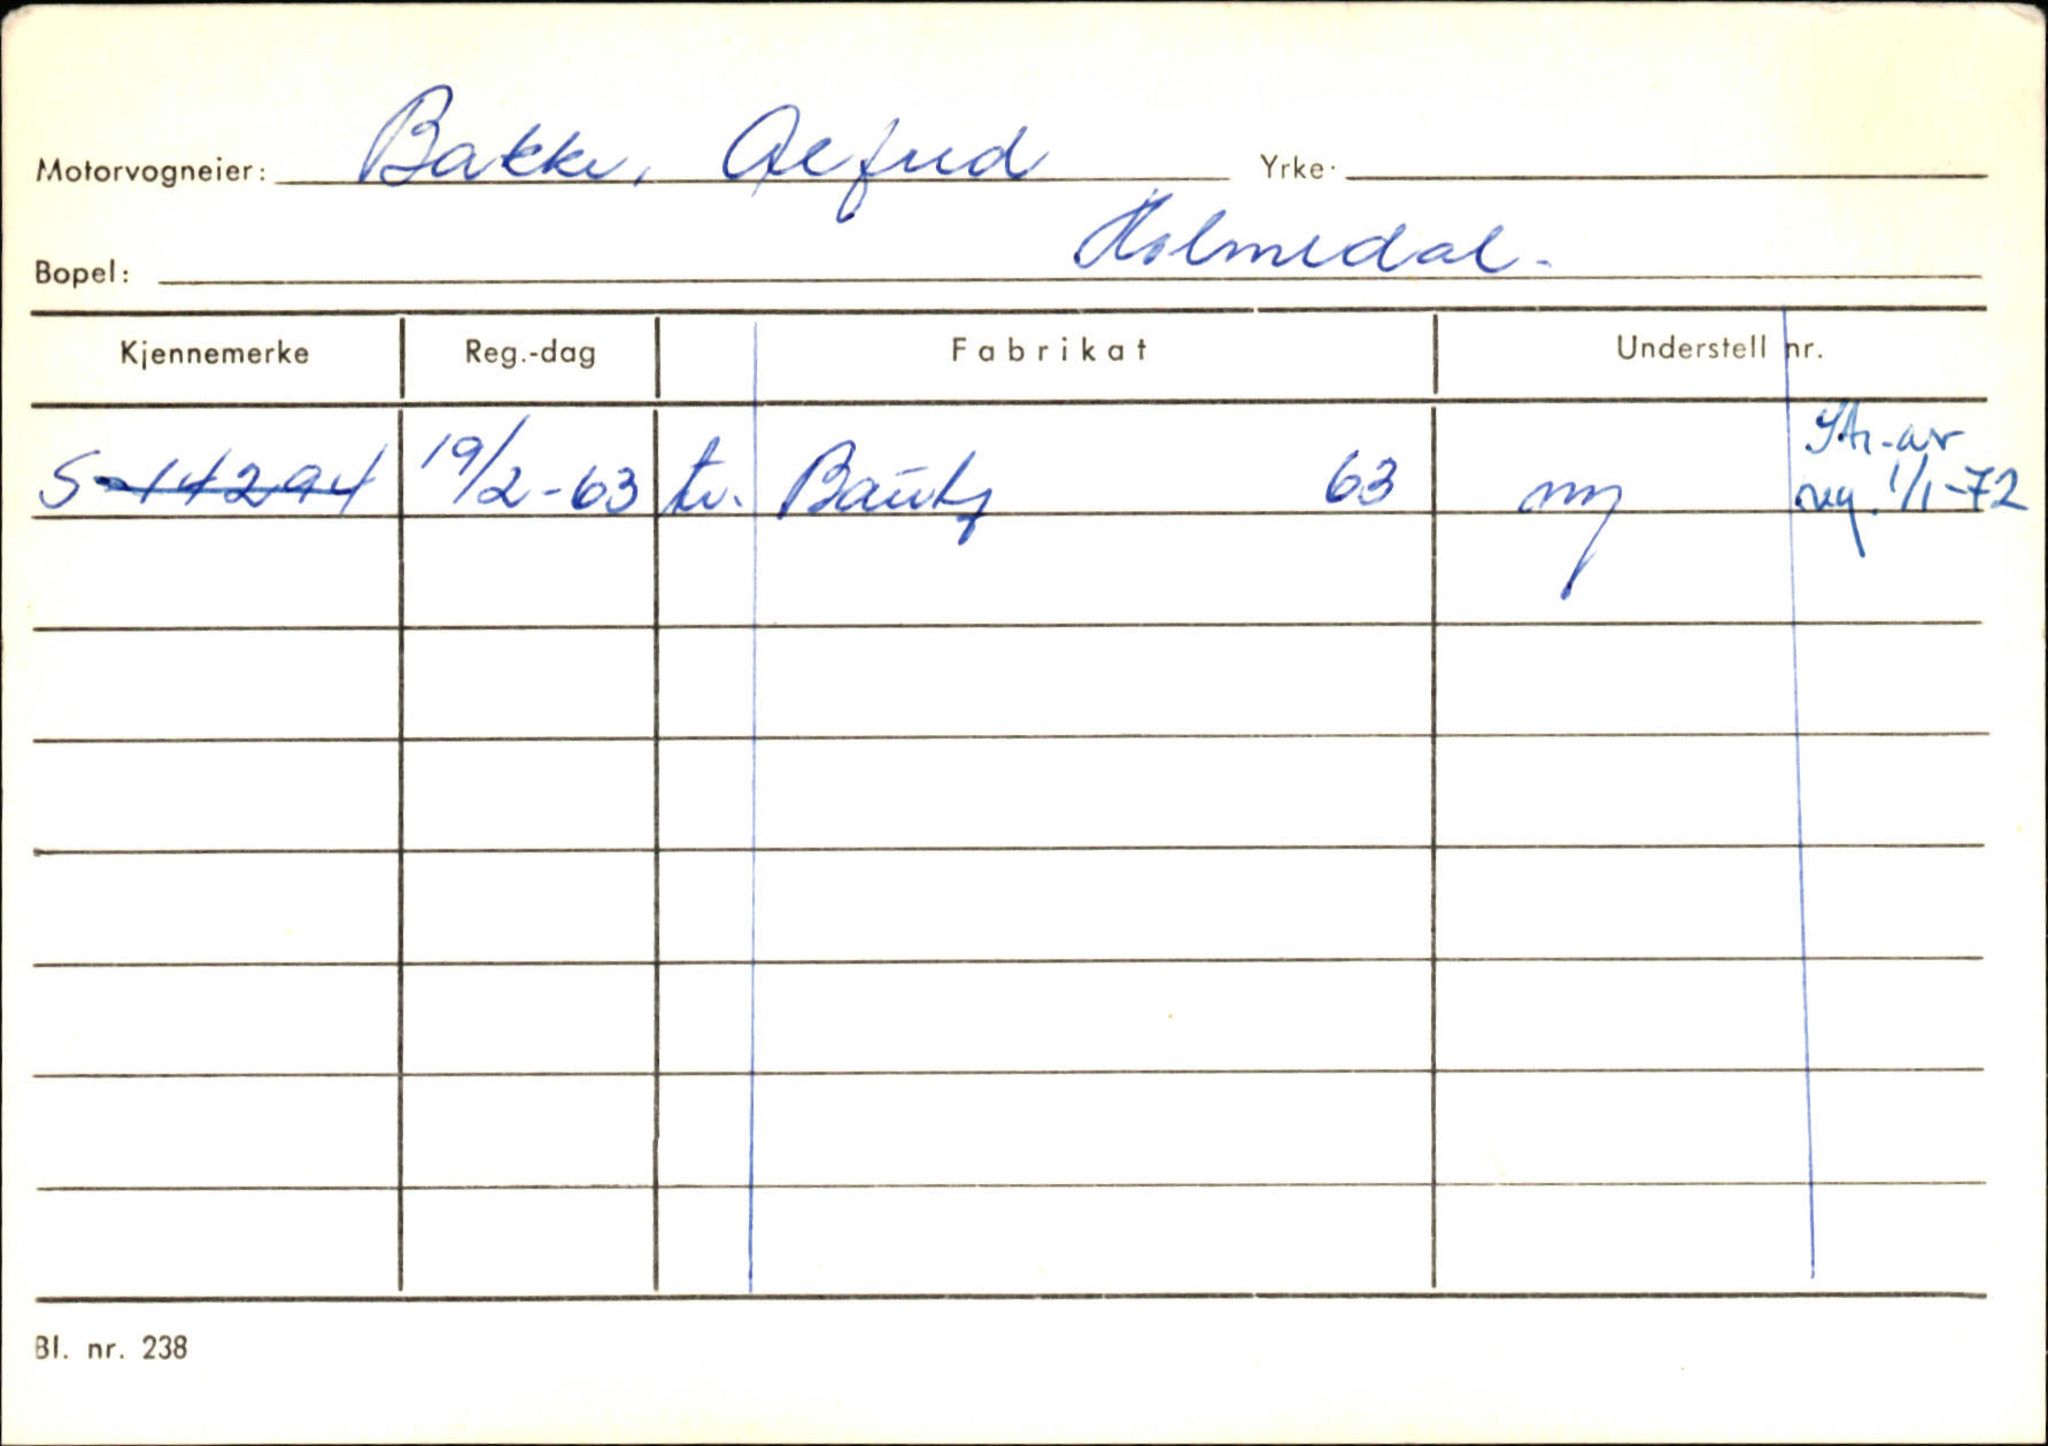 Motorvogneier: Bakke, Alfred Yrke:
Holmedal.
Bopel:
Kjennemerke Reg.-dag Fabrikat Understell nr.
Str. av
S-14294 19/2-63 tr. Bautz 63 ny reg. 1/1-72
Bl. nr. 238